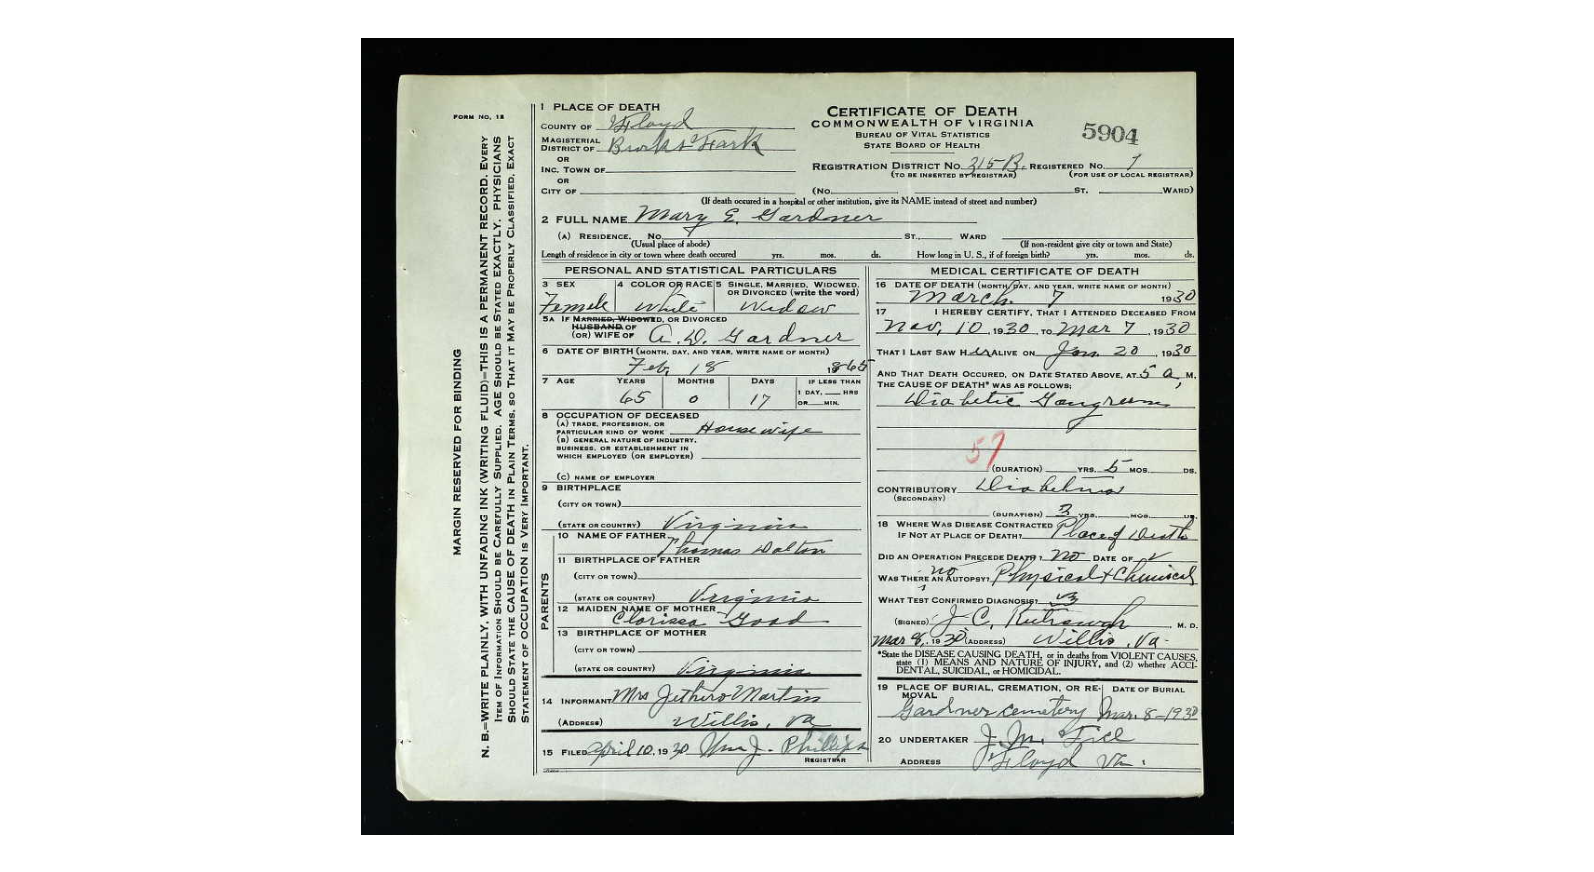 FORM NO. 12
MARGIN RESERVED FOR BINDING
N. B.—WRITE PLAINLY, WITH UNFADING INK (WRITING FLUID)—THIS IS A PERMANENT RECORD. EVERY
ITEM OF INFORMATION SHOULD BE CAREFULLY SUPPLIED. AGE SHOULD BE STATED EXACTLY. PHYSICIANS
SHOULD STATE THE CAUSE OF DEATH IN PLAIN TERMS, SO THAT IT MAY BE PROPERLY CLASSIFIED. EXACT
STATEMENT OF OCCUPATION IS VERY IMPORTANT.
1 PLACE OF DEATH
COUNTY OF Floyd
MAGISTERIAL
DISTRICT OF
OR
INC. TOWN OF
OR
CITY OF
CERTIFICATE OF DEATH
COMMONWEALTH OF VIRGINIA
BUREAU OF VITAL STATISTICS
STATE BOARD OF HEALTH
5904
REGISTRATION DISTRICT NO. 315-B. REGISTERED NO. 7
(TO BE INSERTED BY REGISTRAR) (FOR USE OF LOCAL REGISTRAR)
(NO. ST. WARD)
(If death occured in a hospital or other institution, give its NAME instead of street and number)
2 FULL NAME Mary E. Gardner
(A) RESIDENCE, NO. ST. WARD
(Usual place of abode) (If non-resident give city or town and State)
Length of residence in city or town where death occured yrs. mos. ds. How long in U. S., if of foreign birth? yrs. mos. ds.
PERSONAL AND STATISTICAL PARTICULARS
3 SEX 4 COLOR OR RACE 5 SINGLE, MARRIED, WIDOWED,
OR DIVORCED (write the word)
Female White Widow
5A IF MARRIED, WIDOWED, OR DIVORCED
HUSBAND OF
(OR) WIFE OF A. D. Gardner
6 DATE OF BIRTH (MONTH, DAY, AND YEAR, WRITE NAME OF MONTH)
Feb, 18 1865
7 AGE YEARS MONTHS DAYS IF LESS THAN
1 DAY, HRS
OR MIN.
65 0 17
8 OCCUPATION OF DECEASED
(A) TRADE, PROFESSION, OR
PARTICULAR KIND OF WORK House wife
(B) GENERAL NATURE OF INDUSTRY,
BUSINESS, OR ESTABLISHMENT IN
WHICH EMPLOYED (OR EMPLOYER)
(C) NAME OF EMPLOYER
9 BIRTHPLACE
(CITY OR TOWN)
(STATE OR COUNTRY) Virginia
PARENTS
10 NAME OF FATHER
Thomas Dalton
11 BIRTHPLACE OF FATHER
(CITY OR TOWN)
(STATE OR COUNTRY) Virginia
12 MAIDEN NAME OF MOTHER
Clorissa Good
13 BIRTHPLACE OF MOTHER
(CITY OR TOWN)
(STATE OR COUNTRY) Virginia
14 INFORMANT Mrs Jethero Martin
(ADDRESS) Willis, Va
15 FILED April 10, 1930 Wm J. Phillips
REGISTRAR
MEDICAL CERTIFICATE OF DEATH
16 DATE OF DEATH (MONTH, DAY, AND YEAR, WRITE NAME OF MONTH)
March 7 1930
17 I HEREBY CERTIFY, THAT I ATTENDED DECEASED FROM
Nov, 10, 1930, TO Mar 7, 1930
THAT I LAST SAW HER ALIVE ON Jan 20, 1930
AND THAT DEATH OCCURED, ON DATE STATED ABOVE, AT 5 a, M.
THE CAUSE OF DEATH* WAS AS FOLLOWS:
Diabetic Gangrene
57
(DURATION) YRS. 5 MOS. DS.
CONTRIBUTORY
(SECONDARY)
(DURATION) 3 YRS. MOS. DS.
18 WHERE WAS DISEASE CONTRACTED
IF NOT AT PLACE OF DEATH? Place of Death
DID AN OPERATION PRECEDE DEATH? no DATE OF
WAS THERE AN AUTOPSY? no Physical & Chemical
WHAT TEST CONFIRMED DIAGNOSIS?
(SIGNED) J. C. M. D.
Mar 8, 1930 (ADDRESS) Willis, Va.
*State the DISEASE CAUSING DEATH, or in deaths from VIOLENT CAUSES,
state (1) MEANS AND NATURE OF INJURY, and (2) whether ACCI-
DENTAL, SUICIDAL, or HOMICIDAL.
19 PLACE OF BURIAL, CREMATION, OR RE- DATE OF BURIAL
MOVAL
Gardner cemetery Mar. 8-1930
20 UNDERTAKER J. M.
ADDRESS Floyd Va.